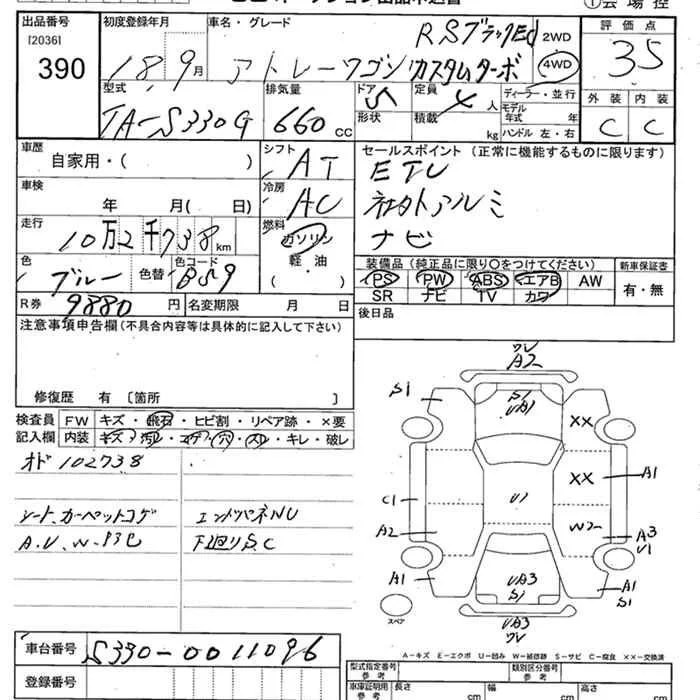 出品番号
[2036]
390
初度登録年月
18 9 月
車名・グレード
RSブラックEd
アトレーワゴン カスタムターボ
2WD
4WD
評価点
35
外装 内装
C C
型式
TA-S330G
排気量
660 cc
ドア
5
形状
定員
4 人
積載 kg
ディーラー・並行
モデル年式 年
ハンドル 左・右
車歴
自家用・( )
シフト
AT
セールスポイント (正常に機能するものに限ります)
ETC
社外アルミ
ナビ
車検
年 月( 日)
冷房
AC
走行
10万2千738 km
燃料
ガソリン
軽・油
色
ブルー
色替
色コード
B59
装備品 (純正品に限り○をつけてください)
PS PW ABS エアB AW
SR ナビ TV カワ
新車保証書
有・無
R券
9880 円
名変期限 月 日
後日品
注意事項申告欄(不具合内容等は具体的に記入して下さい)
修復歴 有 [箇所 ]
検査員
記入欄
FW キズ・飛石・ヒビ割・リペア跡・×要
内装 キズ・汚れ・コゲ・穴・スレ・キレ・破レ
オド 102738
シート、カーペットコゲ
エンドパネルU
下廻りS.C
W
A2
S1
S1
UA1
XX
XX
A1
C1
U1
A2
W2
A3
U1
A1
UA3
S1
A1
S1
UA3
W
スペア
A-キズ E-エクボ U-凹み W-補修跡 S-サビ C-腐食 XX-交換済
車台番号
S330-0011096
登録番号
型式指定番号
参考
類別区分番号
参考
車庫証明用
参考
長さ cm
幅 cm
高さ cm